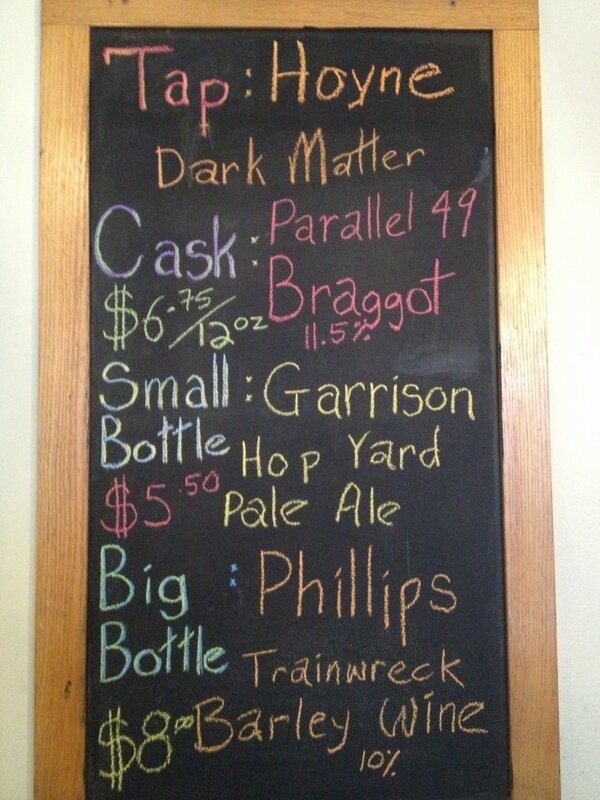 Tap : Hoyne
Dark Matter
Cask : Parallel 49
$6.75/12oz Braggot
11.5%
Small : Garrison
Bottle Hop Yard
$5.50 Pale Ale
Big : Phillips
Bottle Trainwreck
$8.00 Barley Wine
10%